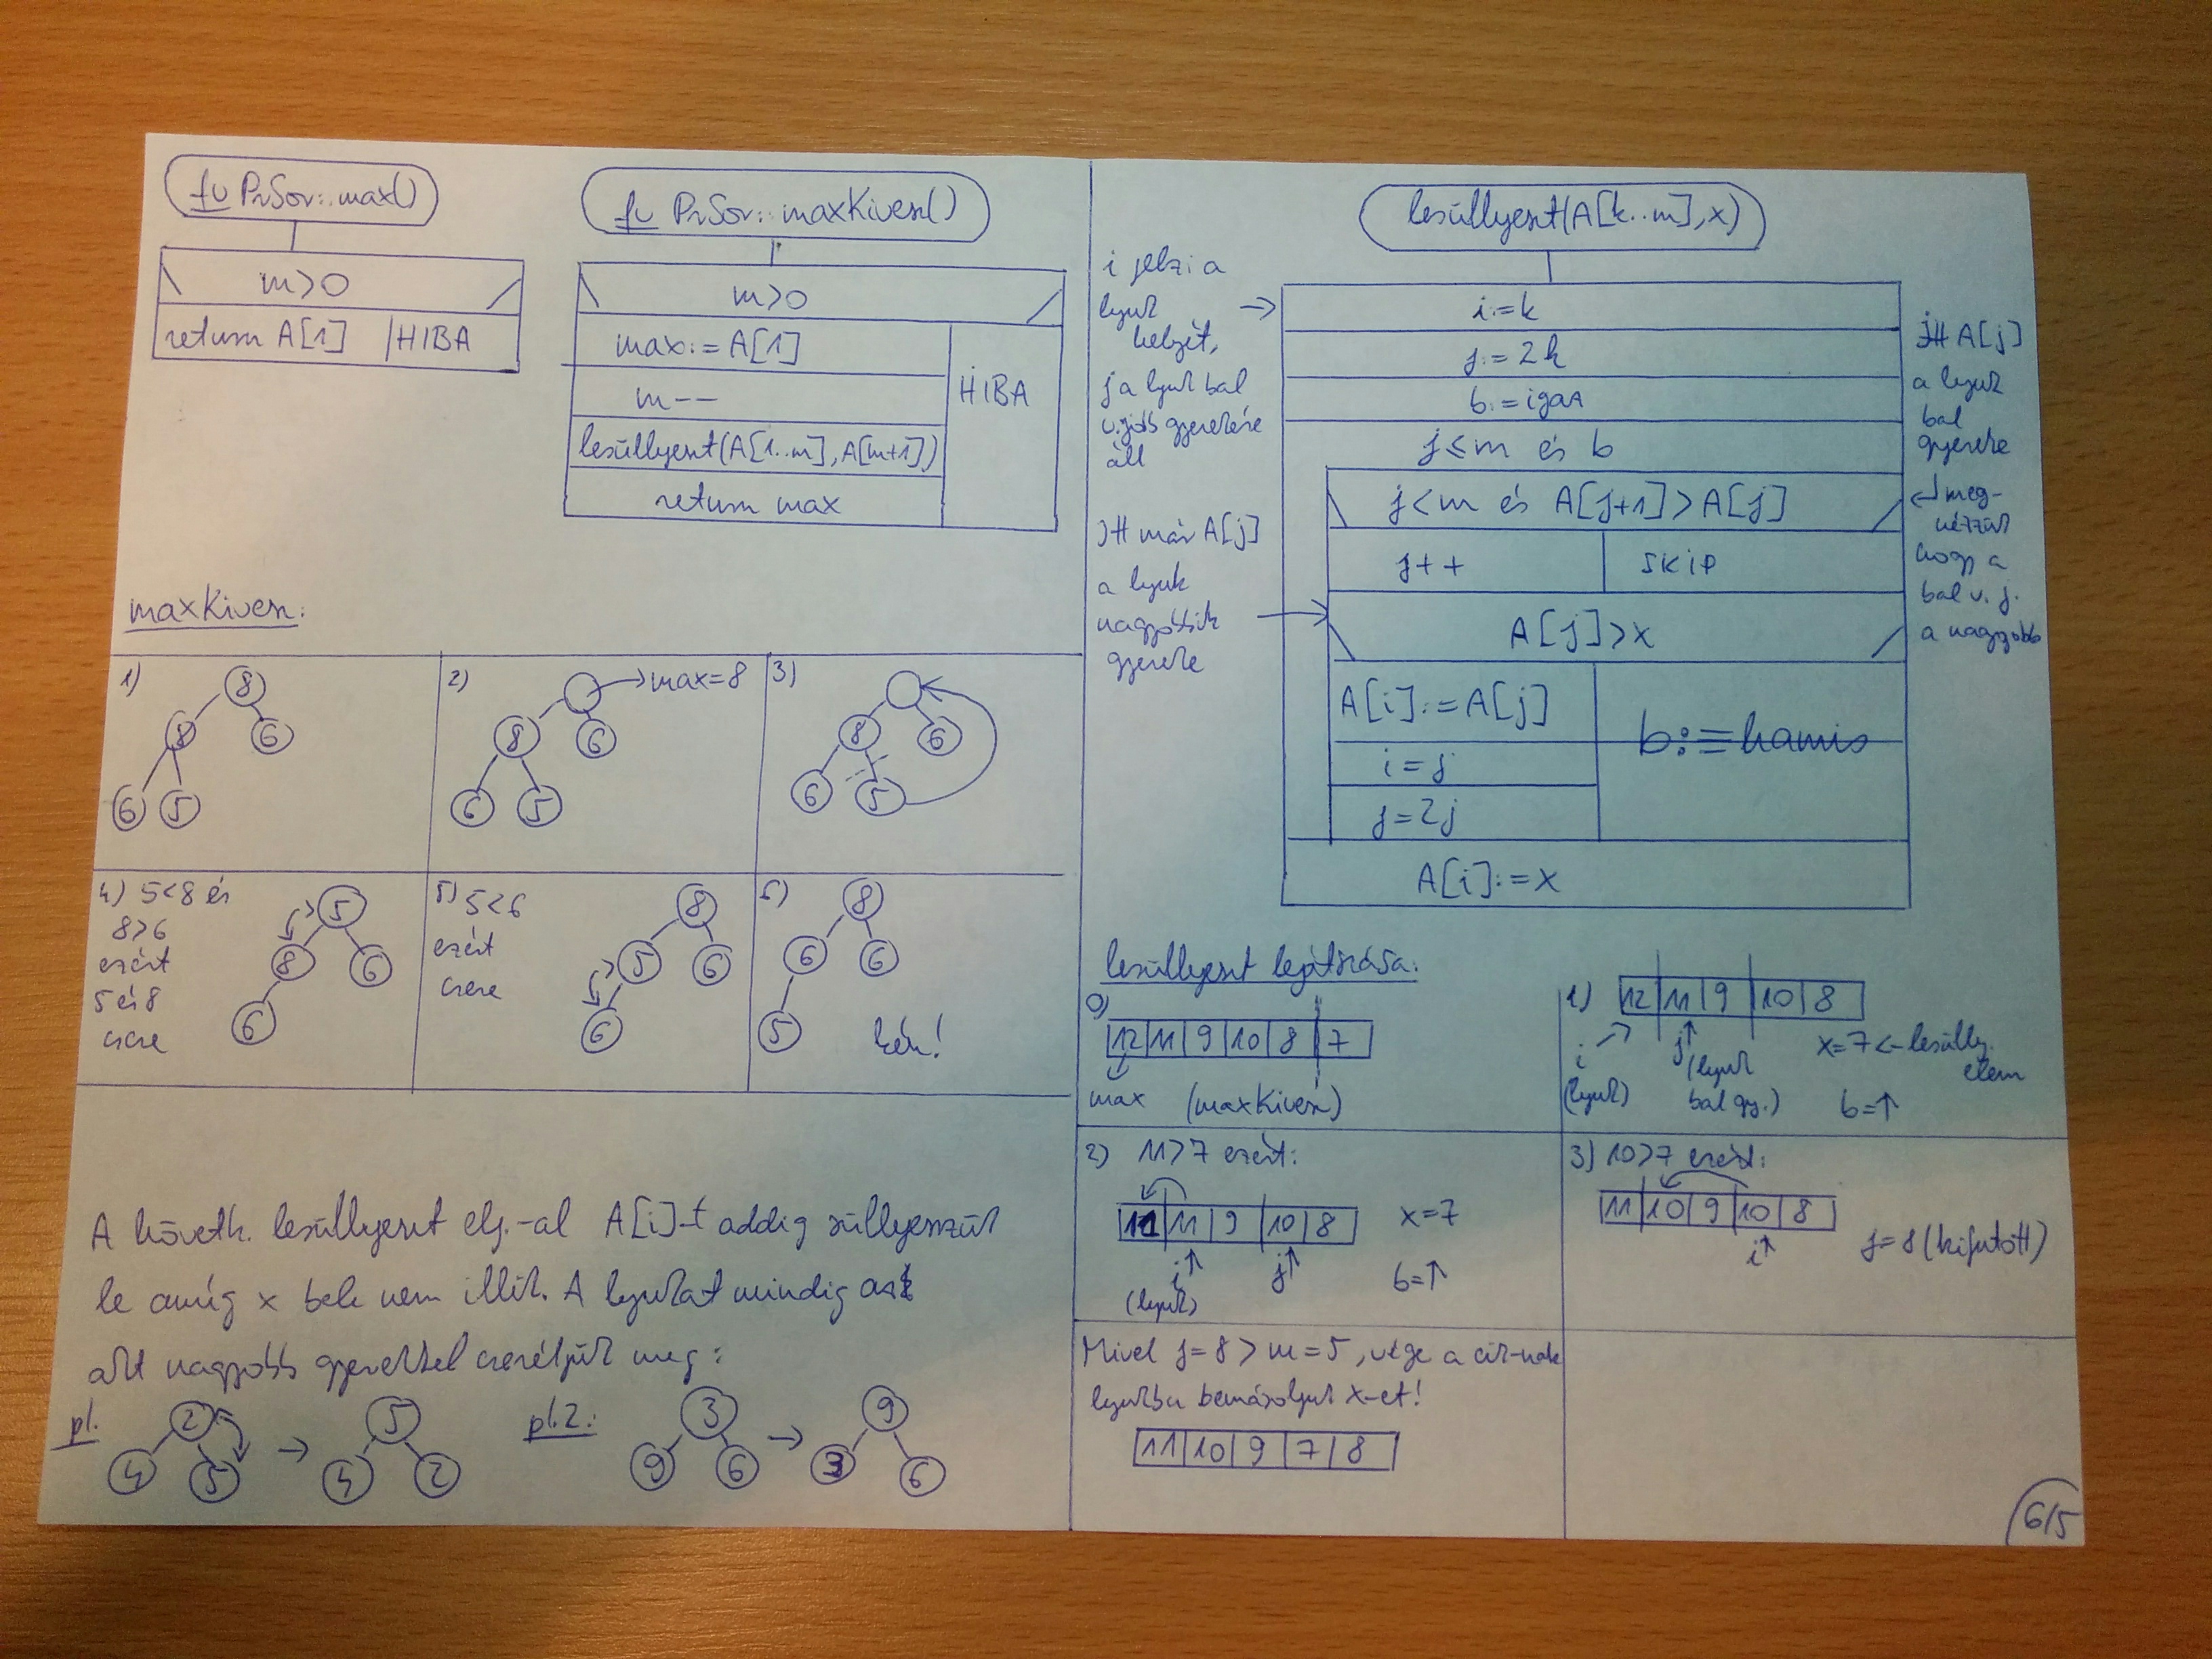 fv PrSor::max()
m>0
return A[1] | HIBA
fv PrSor::maxKivesz()
m>0
max:=A[1]
HIBA
m--
lesüllyeszt(A[1..m],A[m+1])
return max
maxKivesz:
1)
8
8 6
6 5
2)
→max=8
8 6
6 5
3)
8 6
6 5
4) 5<8 és
8>6
ezért
5 és 8
csere
5
8 6
6
5) 5<6
ezért
csere
8
5 6
6
6)
8
6 6
5
kész!
A követk. lesüllyeszt elj.-al A[i]-t addig süllyesszük
le amíg x bele nem illik. A lyukat mindig
alt nagyobb gyerekkel cseréljük meg:
pl.
2
4 5
→
5
4 2
pl.2.:
3
9 6
→
9
3 6
lesüllyeszt(A[k..m],x)
i jelzi a
lyuk →
helyét,
j a lyuk bal
v. jobb gyerekére
áll
)H már A[j]
a lyuk
nagyobbik
gyereke
i:=k
j:=2k
b:=igaz
j≤m és b
j<m és A[j+1]>A[j]
j++ SKIP
A[j]>x
A[i]:=A[j]
b:=hamis
i=j
j=2j
A[i]:=x
A[j]
a lyuk
bal
gyereke
↵ meg-
nézzük
hogy a
bal v. j.
a nagyobb
lesüllyeszt lejátszása:
0)
12|11|9|10|8|7
max (maxKivesz)
1) 12|11|9|10|8
i j
(lyuk) (lyuk
bal gy.)
x=7 <- lesülly.
elem
b=↑
2) 11>7 ezért:
11|11|9|10|8 x=7
i j b=↑
(lyuk)
3) 10>7 ezért:
11|10|9|10|8
i↑ j=8 (kifutott)
Mivel j=8 > m=5, vége a cik-nak
lyukba bemásoljuk x-et!
11|10|9|7|8
6/5